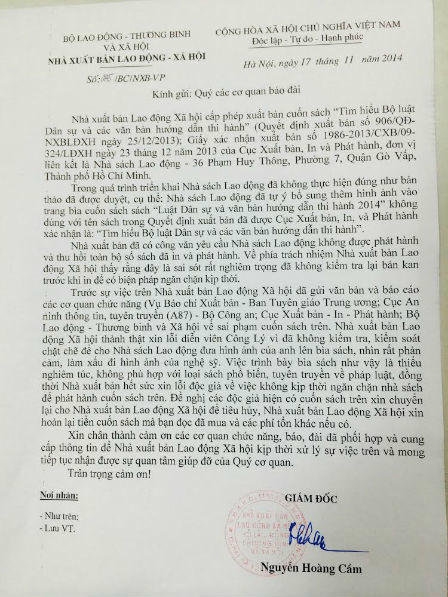 BỘ LAO ĐỘNG - THƯƠNG BINH
VÀ XÃ HỘI
NHÀ XUẤT BẢN LAO ĐỘNG - XÃ HỘI
CỘNG HÒA XÃ HỘI CHỦ NGHĨA VIỆT NAM
Độc lập - Tự do - Hạnh phúc
Số: /BC/NXB-VP
Hà Nội, ngày 17 tháng 11 năm 2014
Kính gửi: Quý các cơ quan báo đài
Nhà xuất bản Lao động Xã hội cấp phép xuất bản cuốn sách “Tìm hiểu Bộ luật
Dân sự và các văn bản hướng dẫn thi hành” (Quyết định xuất bản số 906/QĐ-
NXBLĐXH ngày 25/12/2013); Giấy xác nhận xuất bản số 1986-2013/CXB/09-
324/LĐXH ngày 23 tháng 12 năm 2013 của Cục Xuất bản, In và Phát hành, đơn vị
liên kết là Nhà sách Lao động - 36 Phạm Huy Thông, Phường 7, Quận Gò Vấp,
Thành phố Hồ Chí Minh.
Trong quá trình triển khai Nhà sách Lao động đã không thực hiện đúng như bản
thảo đã được duyệt, cụ thể: Nhà sách Lao động đã tự ý bổ sung thêm hình ảnh vào
trang bìa cuốn sách sách “Luật Dân sự và văn bản hướng dẫn thi hành 2014” không
đúng với tên sách trong Quyết định xuất bản đã được Cục Xuất bản, In, và Phát hành
xác nhận là: “Tìm hiểu Bộ luật Dân sự và các văn bản hướng dẫn thi hành”.
Nhà xuất bản đã có công văn yêu cầu Nhà sách Lao động không được phát hành
và thu hồi toàn bộ số sách đã in và phát hành. Về phía trách nhiệm Nhà xuất bản Lao
động Xã hội thấy rằng đây là sai sót rất nghiêm trọng đã không kiểm tra lại bản kan
trước khi in để có biện pháp ngăn chặn kịp thời.
Trước sự việc trên Nhà xuất bản Lao động Xã hội đã gửi văn bản và báo cáo
các cơ quan chức năng (Vụ Báo chí Xuất bản - Ban Tuyên giáo Trung ương; Cục An
ninh thông tin, tuyên truyền (A87) - Bộ Công an; Cục Xuất bản - In - Phát hành; Bộ
Lao động - Thương binh và Xã hội về sai phạm cuốn sách trên. Nhà xuất bản Lao
động Xã hội thành thật xin lỗi diễn viên Công Lý vì đã không kiểm tra, kiểm soát
chặt chẽ để cho Nhà sách Lao động đưa hình ảnh của anh lên bìa sách, nhìn rất phản
cảm, làm xấu đi hình ảnh của nghệ sỹ. Việc trình bày bìa sách như vậy là thiếu
nghiêm túc, không phù hợp với loại sách phổ biến, tuyên truyền về pháp luật, đồng
thời Nhà xuất bản hết sức xin lỗi độc giả về việc không kịp thời ngăn chặn nhà sách
để phát hành cuốn sách trên. Đề nghị các độc giả hiện có cuốn sách trên xin chuyển
lại cho Nhà xuất bản Lao động Xã hội để tiêu hủy, Nhà xuất bản Lao động Xã hội xin
hoàn lại tiền cuốn sách mà bạn đọc đã mua và các phí tổn khác nếu có.
Xin chân thành cảm ơn các cơ quan chức năng, báo, đài đã phối hợp và cung
cấp thông tin để Nhà xuất bản Lao động Xã hội kịp thời xử lý sự việc trên và mong
tiếp tục nhận được sự quan tâm giúp đỡ của Quý cơ quan.
Trân trọng cảm ơn!
Nơi nhận:
- Như trên;
- Lưu VT.
GIÁM ĐỐC
NHÀ XUẤT BẢN
LAO ĐỘNG XÃ HỘI
Nguyễn Hoàng Cầm